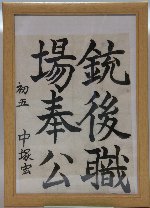 銃後職
場奉公
初五 中塚宏